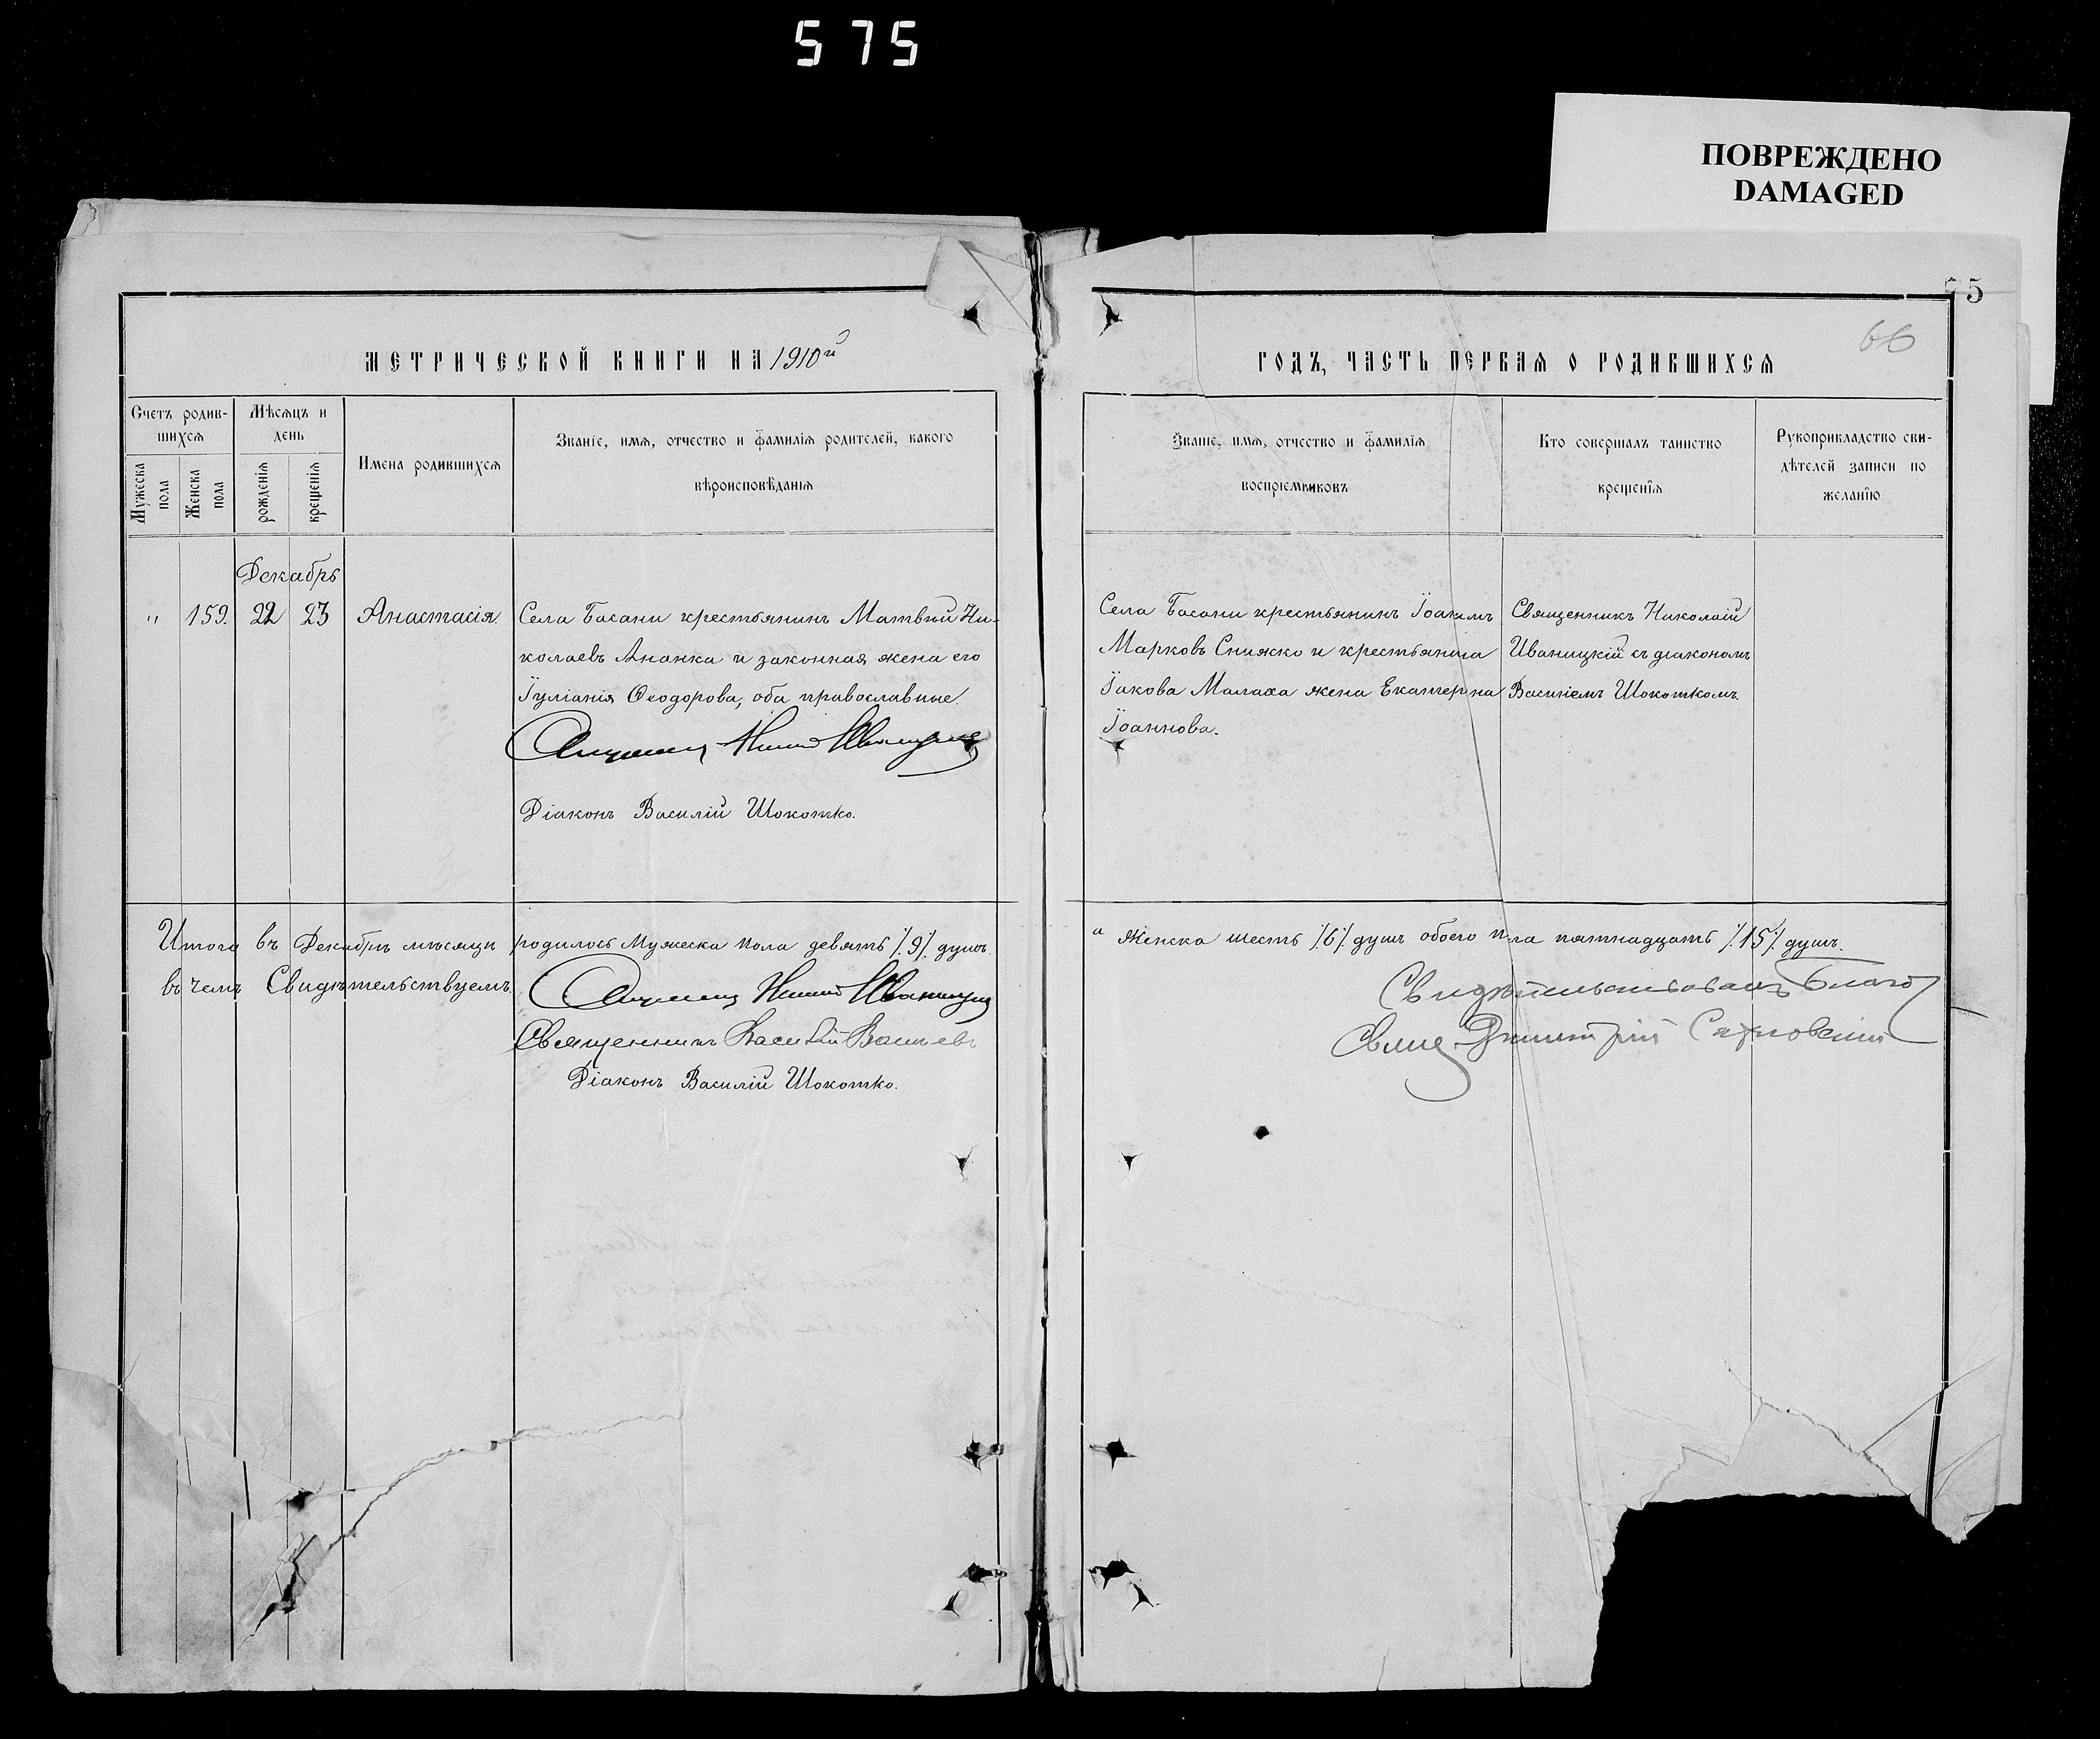 575
ПОВРЕЖДЕНО
DAMAGED
5
66
МЕТРИЧЕСКОЙ КНИГИ НА 1910й
ГОДЪ, ЧАСТЬ ПЕРВАЯ О РОДИВШИХСЯ
Счетъ родив-
шихся
Мужеска
пола
Женска
пола
Мѣсяцъ и
день
рожденія
крещенія
Имена родившихся
Званіе, имя, отчество и фамилія родителей, какого
вѣроисповѣданія
Званіе, имя, отчество и фамилія
воспріемниковъ
Кто совершалъ таинство
крещенія
Рукоприкладство сви-
дѣтелей записи по
желанію
Декабрь
" 159. 22 23 Анастасія
Села Басани крестьянинъ Матвѣй Ни-
колаевъ Ананка и законная жена его
Іуліанія Ѳеодорова, оба православные.
Діаконъ Василій Шокотко.
Села Басани крестьянинъ Іоакимъ
Марковъ Снижко и крестьянина
Іакова Малаха жена Екатерина
Іоаннова.
Священникъ Николай
Иваницкій съ діакономъ
Василіемъ Шокоткомъ.
Итого въ Декабрѣ мѣсяцѣ родилось Мужеска пола девять /.9/. душъ.
а Женска шесть /.6/. душъ обоего пола пятнадцать /.15/. душъ.
въ чемъ Свидѣтельствуемъ.
Священникъ Василій
Діаконъ Василій Шокотко.
Свидѣтельствовалъ Благоч
Свящ Димитрій